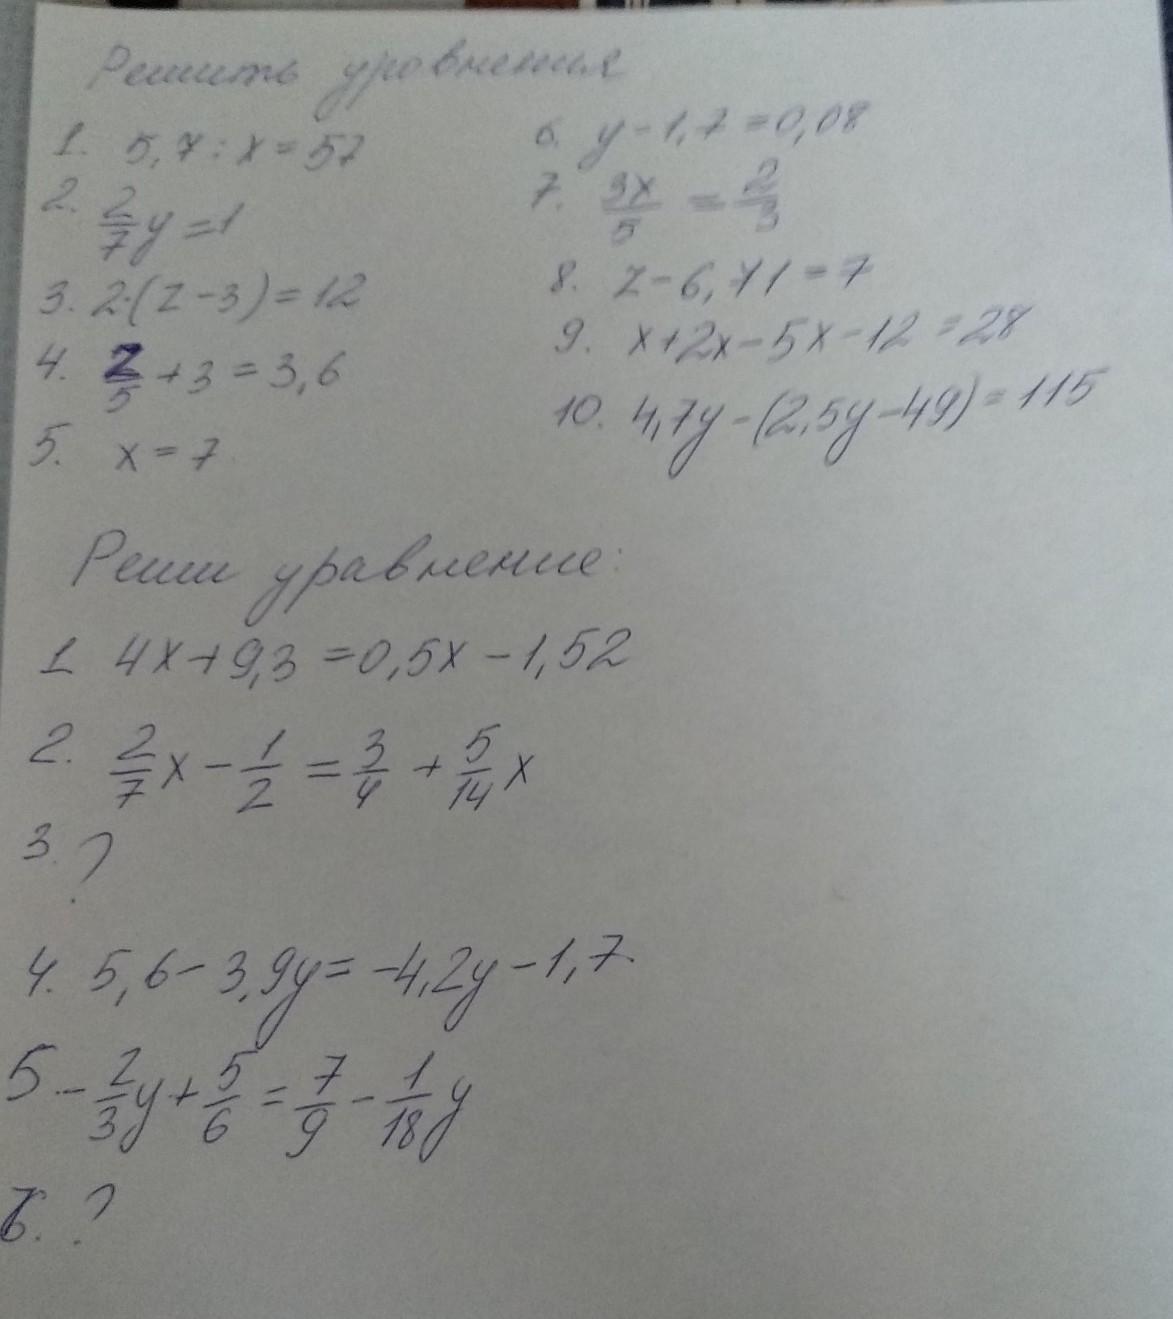 Решить уровнения
1. 5,7 : x = 57
2. 2/7 y = 1
3. 2·(z - 3) = 12
4. z/5 + 3 = 3,6
5. x = 7
6. y - 1,7 = 0,08
7. 3x/5 = 2/3
8. z - 6,71 = 7
9. x + 2x - 5x - 12 = 28
10. 4,7y - (2,5y - 49) = 115
Реши уравнение:
1 4x + 9,3 = 0,5x - 1,52
2. 2/7 x - 1/2 = 3/4 + 5/14 x
3. ?
4. 5,6 - 3,9y = -4,2y - 1,7.
5 - 2/3 y + 5/6 = 7/9 - 1/18 y
6. ?